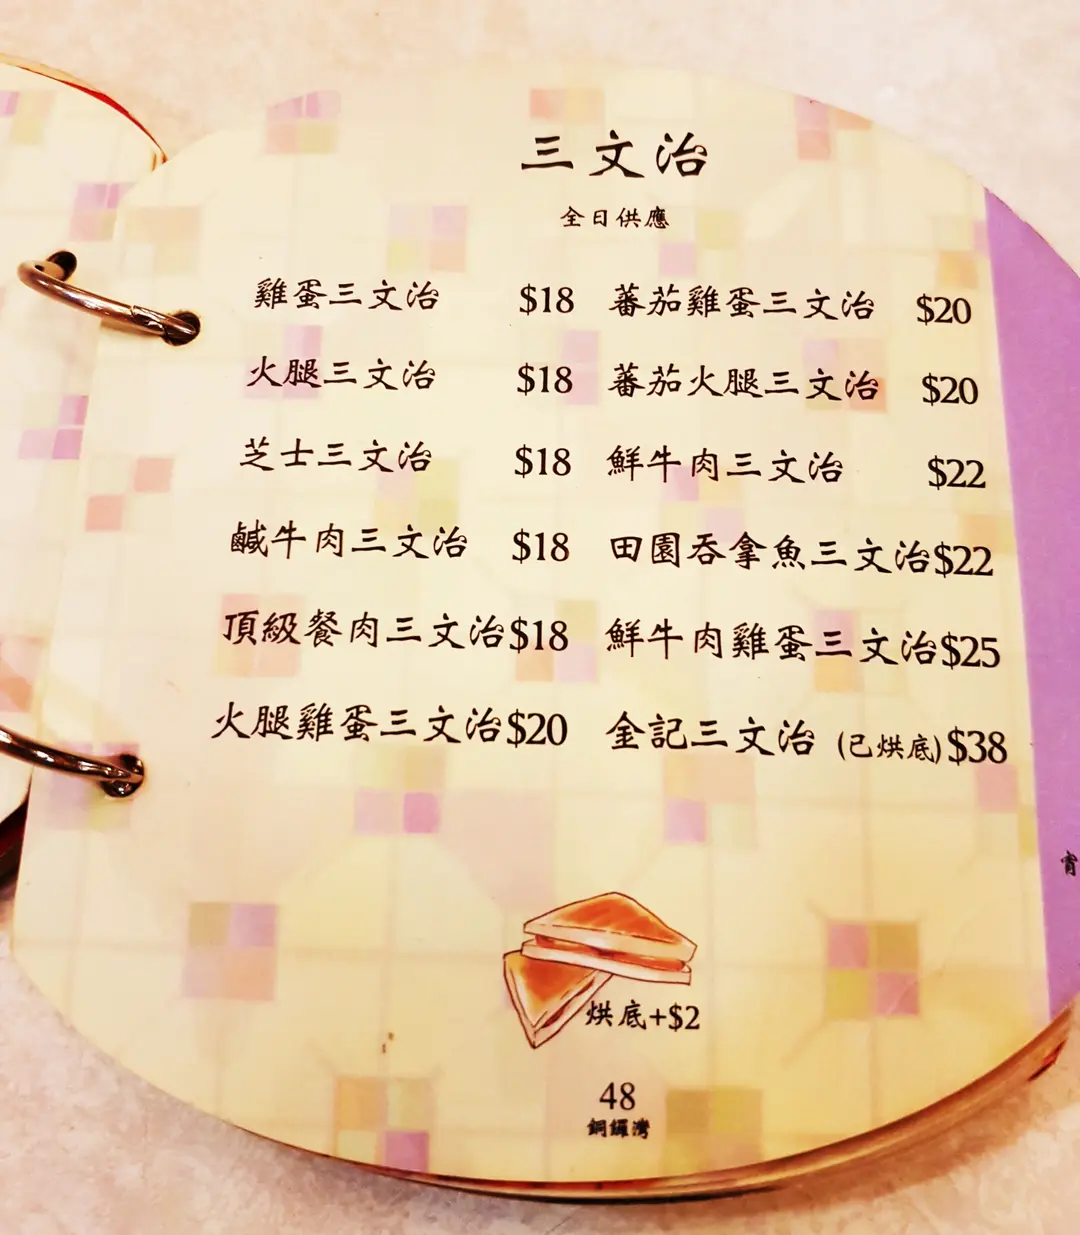 三文治
全日供應
雞蛋三文治 $18
火腿三文治 $18
芝士三文治 $18
鹹牛肉三文治 $18
頂級餐肉三文治$18
火腿雞蛋三文治$20
蕃茄雞蛋三文治 $20
蕃茄火腿三文治 $20
鮮牛肉三文治 $22
田園吞拿魚三文治$22
鮮牛肉雞蛋三文治$25
金記三文治 (已烘底)$38
烘底+$2
48
銅鑼灣
宵